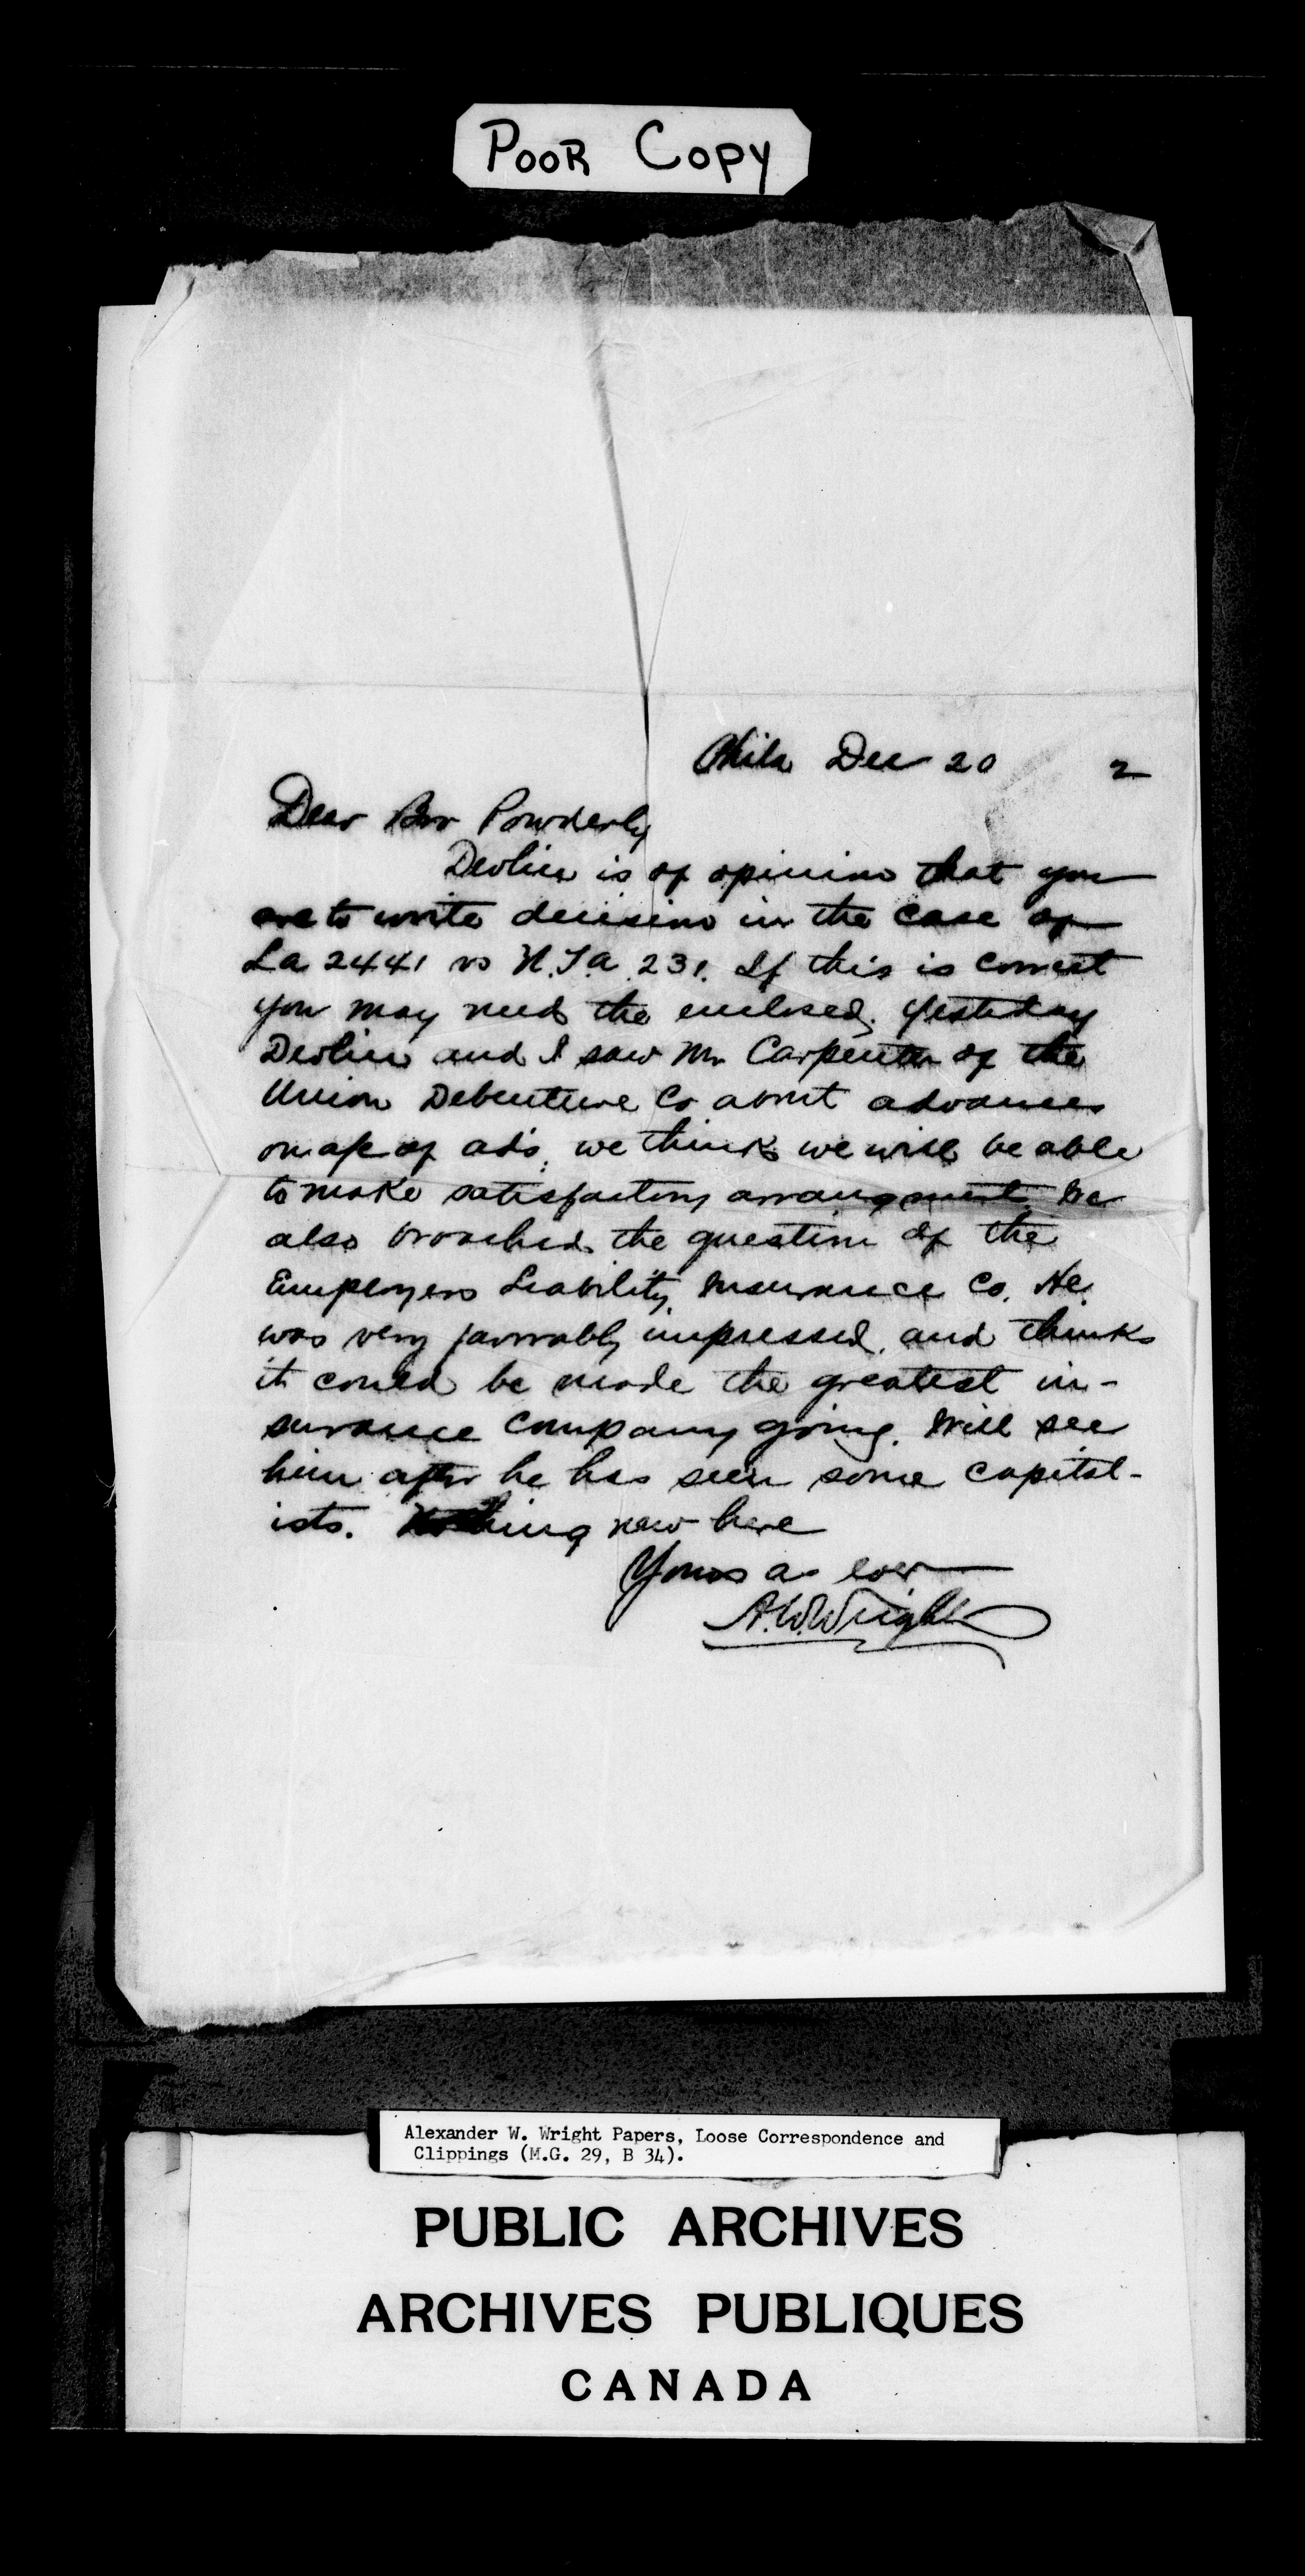 POOR COPY
Phila Dec 20 2
Dear Bro Powderly
Devlin is of opinion that you
are to write decision in the case of
La 2441 vs N.T.a 231. If this is correct
you may need the enclosed. Yesterday
Devlin and I saw Mr Carpenter of the
Union Debenture Co about advances
on a/c of ads, we think we will be able
to make satisfactory arrangment. We
also broached the question of the
Employers Liability Insurance Co. He
was very favorably impressed, and thinks
it could be made the greatest in-
surance company going. Will see
him after he has seen some capital-
ists. Nothing new here
Yours as ever
A.W.Wright
Alexander W. Wright Papers, Loose Correspondence and
Clippings (M.G. 29, B 34).
PUBLIC ARCHIVES
ARCHIVES PUBLIQUES
CANADA